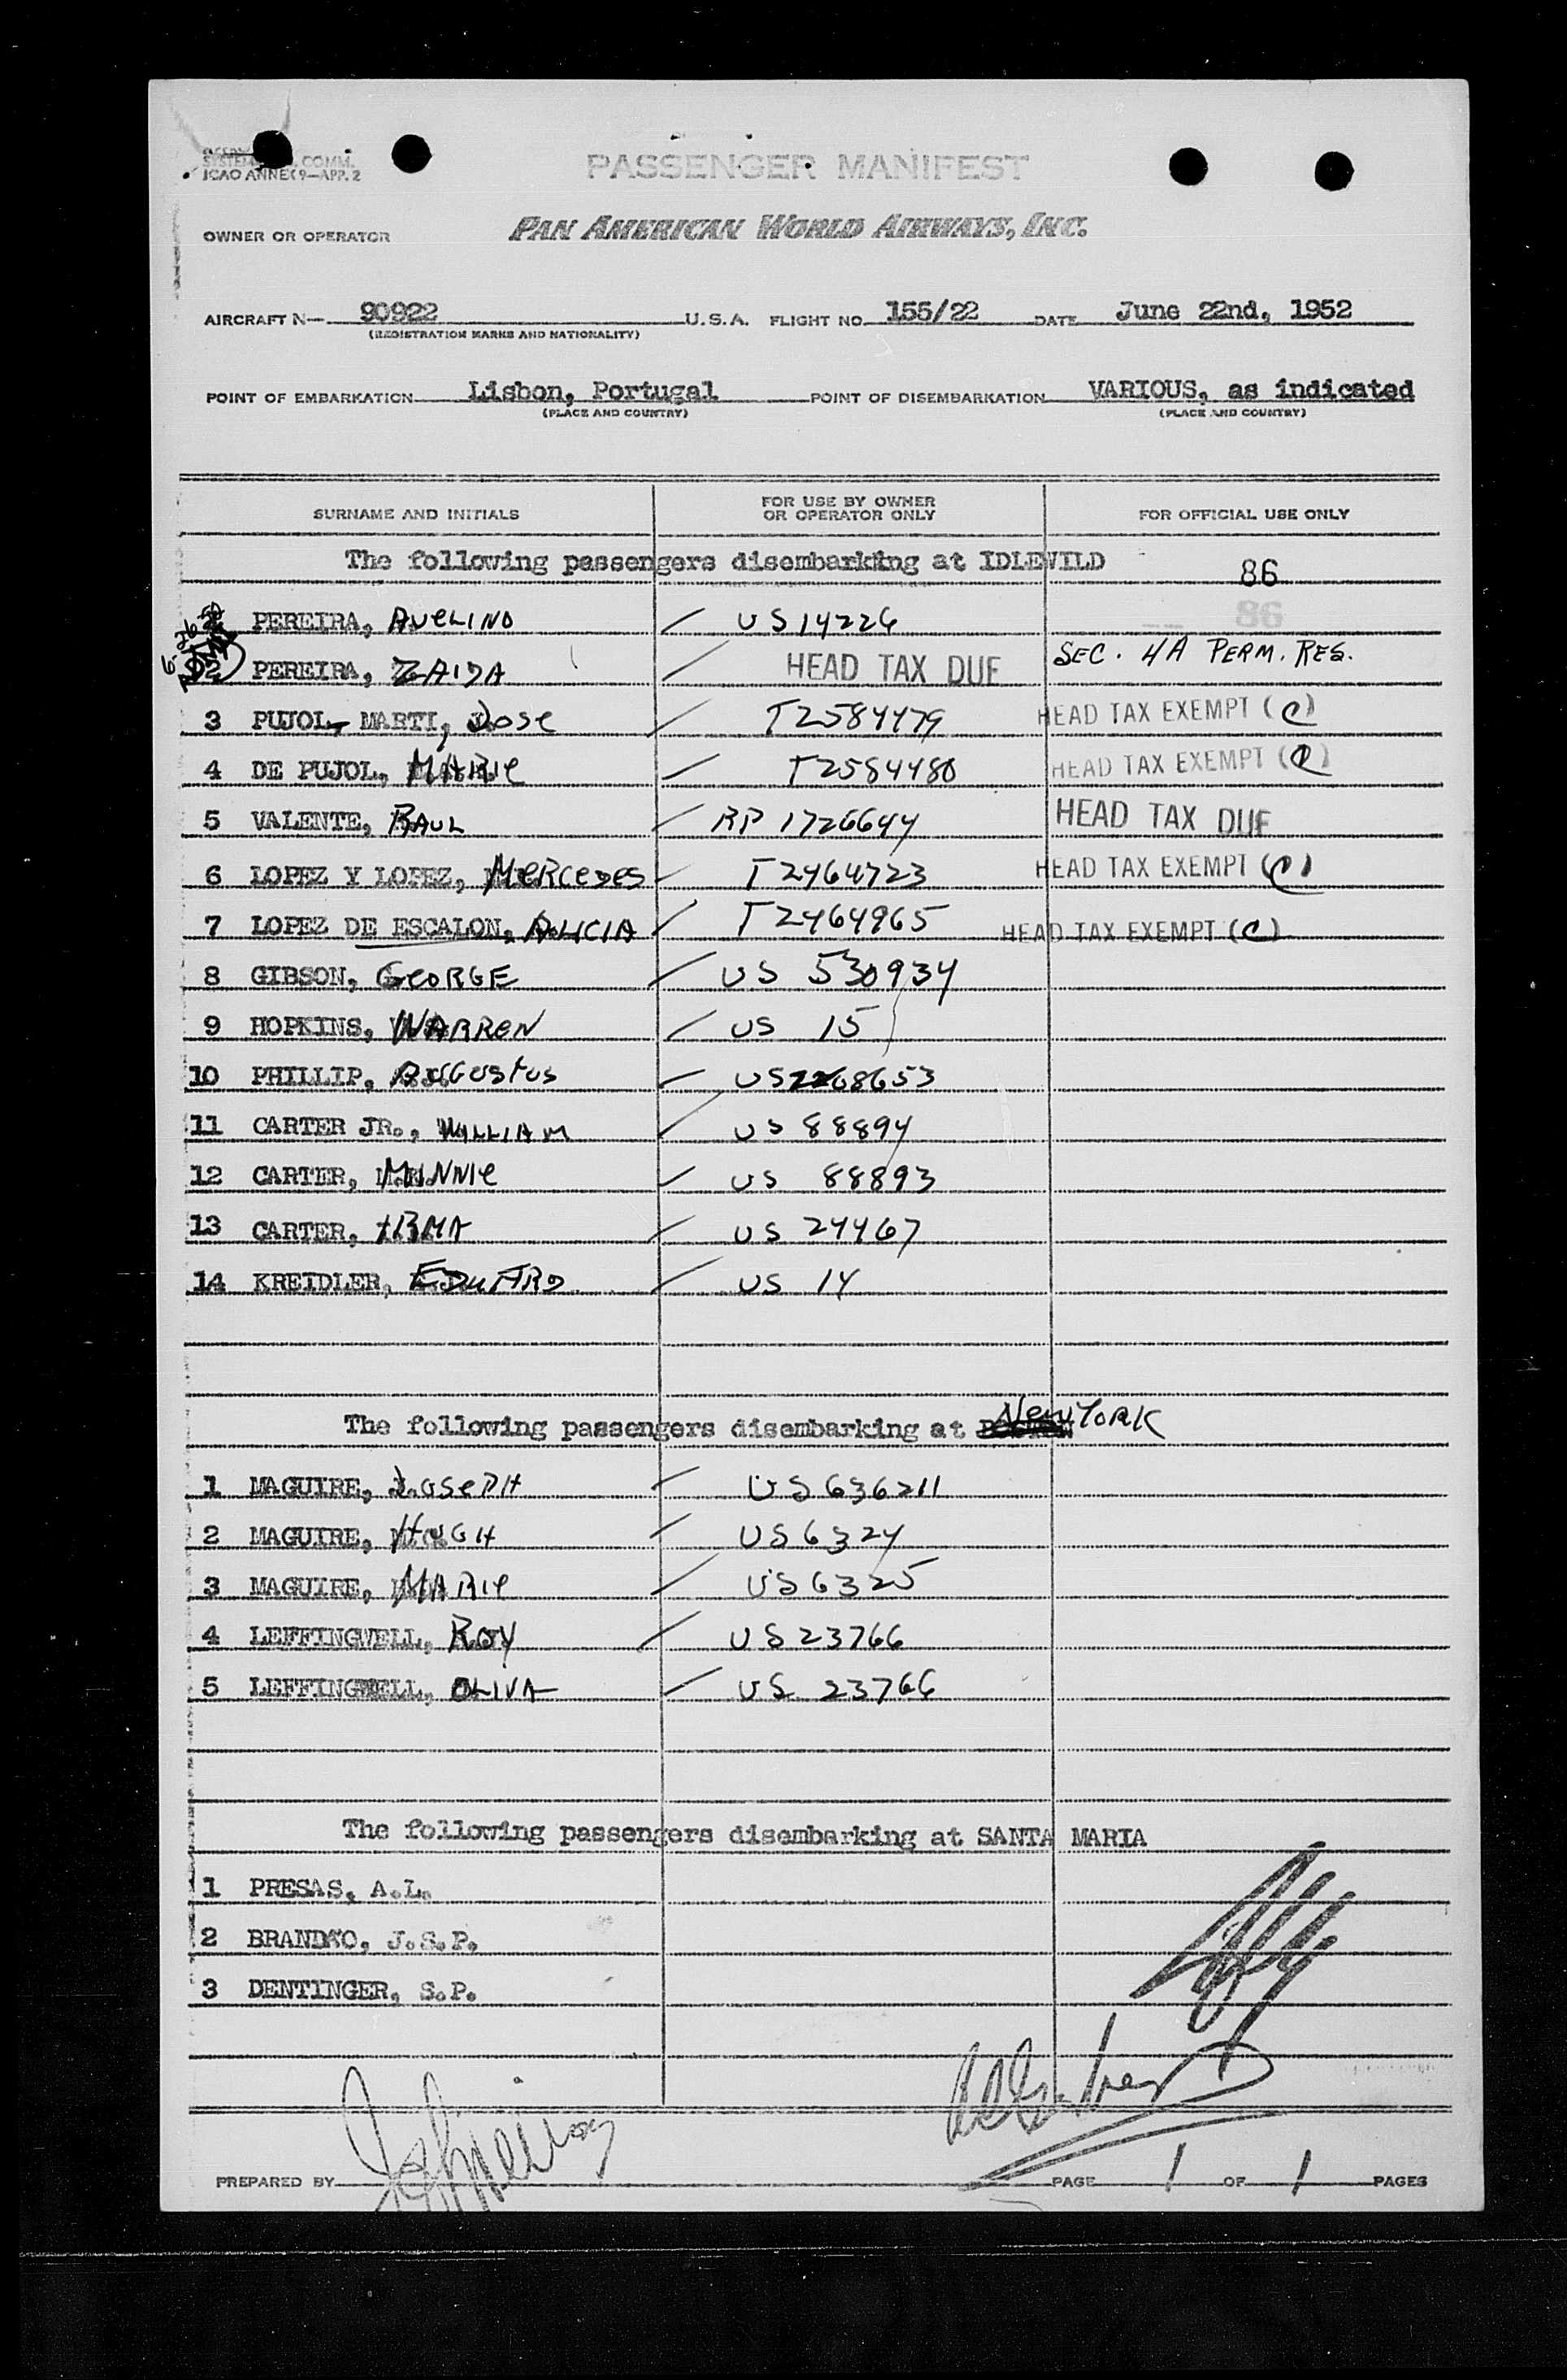 SYSTEM COMM.
ICAO ANNEX 9—APP. 2
PASSENGER MANIFEST
OWNER OR OPERATOR PAN AMERICAN WORLD AIRWAYS, INC.
AIRCRAFT N— 90922 U.S.A. FLIGHT NO. 155/22 DATE June 22nd, 1952
(REGISTRATION MARKS AND NATIONALITY)
POINT OF EMBARKATION Lisbon, Portugal POINT OF DISEMBARKATION VARIOUS, as indicated
(PLACE AND COUNTRY) (PLACE AND COUNTRY)
SURNAME AND INITIALS FOR USE BY OWNER OR OPERATOR ONLY FOR OFFICIAL USE ONLY
The following passengers disembarking at IDLEWILD 86
PEREIRA, AVELINO / US 14226 86
PEREIRA, ZAIDA / HEAD TAX DUE SEC. 4A PERM. RES.
3 PUJOL- MARTI, Jose / T2584479 HEAD TAX EXEMPT (C)
4 DE PUJOL, MARIE / T2584480 HEAD TAX EXEMPT (C)
5 VALENTE, RAUL / RP 1726644 HEAD TAX DUE
6 LOPEZ Y LOPEZ, MERCEDES / T2464723 HEAD TAX EXEMPT (C)
7 LOPEZ DE ESCALON, ALICIA / T2464965 HEAD TAX EXEMPT (C)
8 GIBSON, GEORGE / US 530934
9 HOPKINS, WARREN / US 15
10 PHILLIP, AUGUSTUS / US2268653
11 CARTER JR., WILLIAM / US 88894
12 CARTER, MINNIE / US 88893
13 CARTER, IRMA / US 24467
14 KREIDLER, EDUARD / US 14
The following passengers disembarking at New YORK
1 MAGUIRE, JOSEPH / US 636211
2 MAGUIRE, HUGH / US 6324
3 MAGUIRE, MARIE / US 6325
4 LEFFINGWELL, ROY / US 23766
5 LEFFINGWELL, OLIVA / US 23766
The following passengers disembarking at SANTA MARIA
1 PRESAS, A.L.
2 BRANDAO, J.S.P.
3 DENTINGER, S.P.
PREPARED BY PAGE 1 OF 1 PAGES